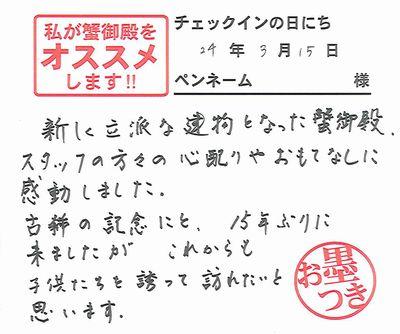 私が蟹御殿を
オススメ
します!!
チェックインの日にち
24年3月15日
ペンネーム 様
新しく立派な建物となった蟹御殿、
スタッフの方々の心配りやおもてなしに
感動しました。
古稀の記念にと、15年ぶりに
来ましたが これからも
子供たちを誘って訪れたいと
思います。
お墨つき